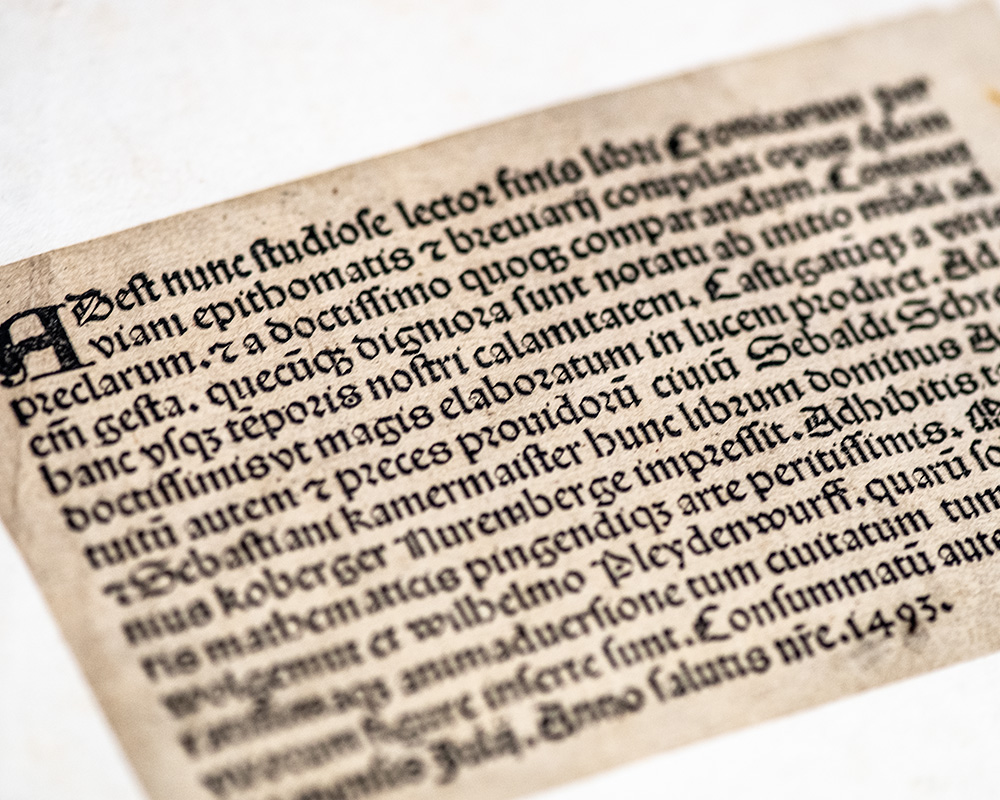 ADest nunc studiose lector finis libri Cronicarum per
viam epithomatis ⁊ breuiarij compilati opus q̃dem
preclarum. ⁊ a doctissimo quoqꝫ comparandum. Continet
em̃ gesta. quecũqꝫ digniora sunt notatu ab initio mũdi ad
hanc vsqꝫ tẽporis nostri calamitatem. Castigatũqꝫ a viris
doctissimis vt magis elaboratum in lucem prodiret. Ad
tuitũ autem ⁊ preces prouidorũ ciuiũ Sebaldi Schre
⁊ Sebastiani kamermaister hunc librum dominus A
nius koberger Nuremberge impressit. Adhibitis t
ris mathematicis pingendiqꝫ arte peritissimis. M
wolgemut et wilhelmo Pleydenwurff. quarũ so
animaduersione tum ciuitatum tum
figure inserte sunt. Consummatũ aute
Julij. Anno salutis nr̃e. 1493.